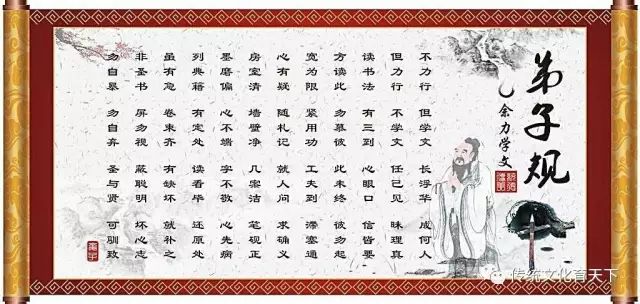 弟子规
余力学文
不力行 但学文 长浮华 成何人
但力行 不学文 任己见 昧理真
读书法 有三到 心眼口 信皆要
方读此 勿慕彼 此未终 彼勿起
宽为限 紧用功 工夫到 滞塞通
心有疑 随札记 就人问 求确义
房室清 墙壁净 几案洁 笔砚正
墨磨偏 心不端 字不敬 心先病
列典籍 有定处 读看毕 还原处
虽有急 卷束齐 有缺坏 就补之
非圣书 屏勿视 蔽聪明 坏心志
勿自暴 勿自弃 圣与贤 可驯致
传统文化育天下